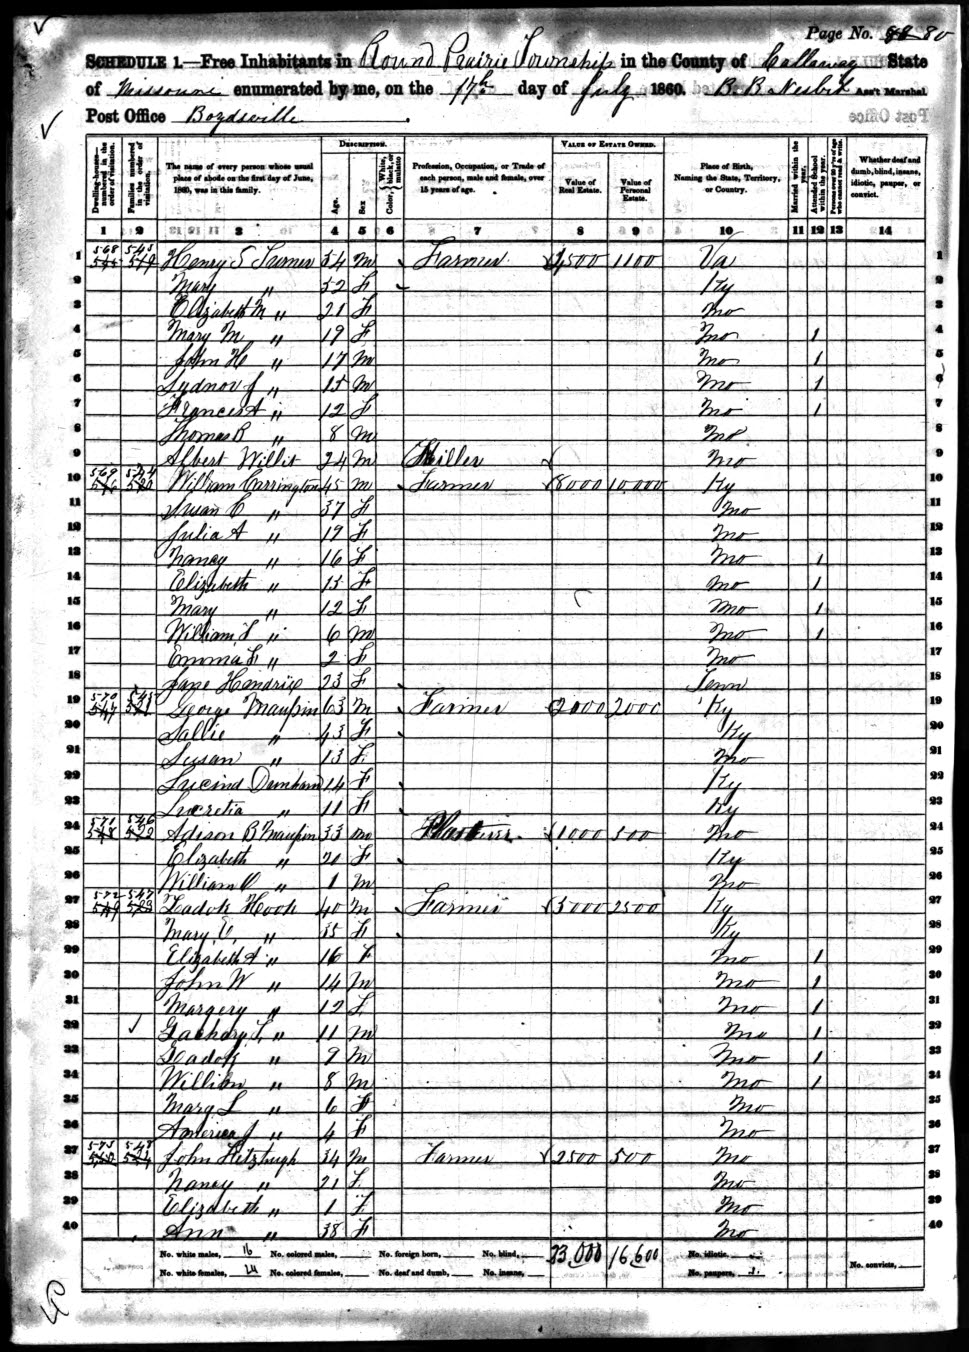 Page No. 80
SCHEDULE 1.—Free Inhabitants in Round Prairie Township in the County of Callaway State
of Missouri enumerated by me, on the 17th day of July 1860. B. B. Nesbit Ass't Marshal
Post Office Boydsville
DESCRIPTION. VALUE OF ESTATE OWNED.
Dwelling-houses—numbered in the order of visitation. Families numbered in the order of visitation. The name of every person whose usual place of abode on the first day of June, 1860, was in this family. Age. Sex Color, White, black, or mulatto Profession, Occupation, or Trade of each person, male and female, over 15 years of age. Value of Real Estate. Value of Personal Estate. Place of Birth, Naming the State, Territory, or Country. Married within the year. Attended School within the year. Persons over 20 y'rs of age who cannot read & write. Whether deaf and dumb, blind, insane, idiotic, pauper, or convict.
1 2 3 4 5 6 7 8 9 10 11 12 13 14
1 568 Henry S 54 m Farmer 1100 Va 1
2 Mary " 52 F Ky 2
3 Elizabeth M " 21 F Mo 3
4 Mary M " 19 F Mo 1 4
5 John H " 17 m Mo 1 5
6 " 15 m Mo 1 6
7 Frances A " 12 F Mo 1 7
8 Thomas B " 8 m Mo 8
9 Albert Willis 24 m Mo 9
10 569 William Carrington 45 m Farmer 8000 10,000 Ky 10
11 Susan C " 37 F Mo 11
12 Julia A " 19 F Mo 12
13 Nancy " 16 F Mo 1 13
14 Elizabeth " 15 F Mo 1 14
15 Mary " 12 F Mo 1 15
16 William F " 6 m Mo 1 16
17 Emma F " 2 F Mo 17
18 Jane Hendrix 23 F Tenn 18
19 570 545 George Maupin 63 m Farmer 2000 2000 Ky 19
20 Sallie " 43 F Ky 20
21 Susan " 13 F Mo 21
22 Lucind Dunham 14 F Ky 22
23 Lucretia " 11 F Ky 23
24 571 546 Adison B Maupin 33 m 1000 500 Mo 24
25 Elizabeth " 20 F Ky 25
26 William " 1 m Mo 26
27 572 547 Zadok Hook 40 m Farmer 2500 Ky 27
28 Mary E. " 35 F Ky 28
29 Elizabeth A " 16 F Mo 1 29
30 John W " 14 m Mo 1 30
31 Margery " 12 F Mo 1 31
32 Zachary T. " 11 m Mo 1 32
33 Zadok " 9 m Mo 1 33
34 William " 8 m Mo 1 34
35 Mary L " 6 F Mo 35
36 America J " 4 F Mo 36
37 573 548 John Fitzhugh 34 m Farmer 2500 500 Mo 37
38 Nancy " 21 F Mo 38
39 Elizabeth " 1 F Mo 39
40 Ann " 38 F Mo 40
No. white males, 16 No. colored males, No. foreign born, No. blind, 16,600 No. idiotic,
No. white females, 24 No. colored females, No. deaf and dumb, No. insane, No. paupers, No. convicts,